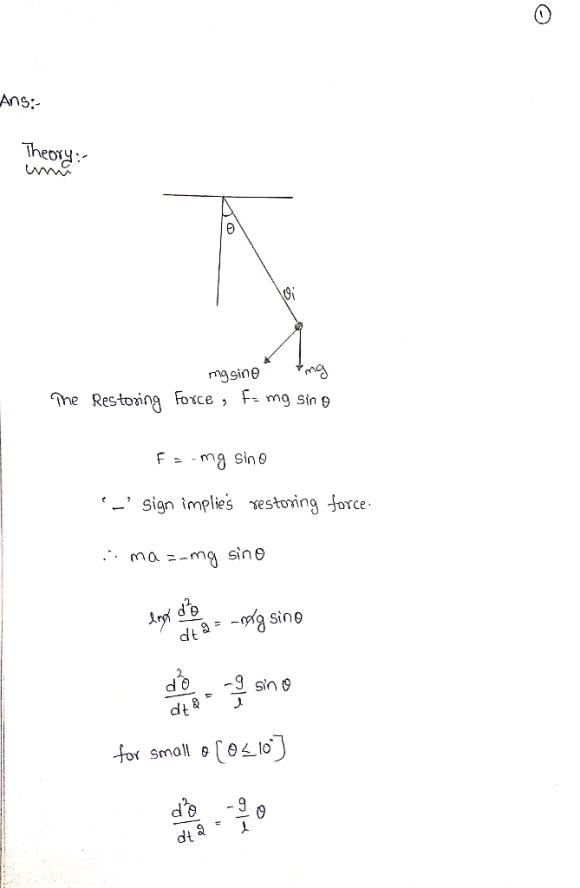 ①
Ans:-
Theory:-
θ
θi
mg sinθ
mg
The Restoring Force, F= mg sin θ
F = -mg sinθ
'_' sign implie's restoring force.
∴ ma = -mg sinθ
lm d²θ/dt² = -mg sinθ
d²θ/dt² = -g/l sin θ
for small θ [θ ≤ 10°]
d²θ/dt² = -g/l θ